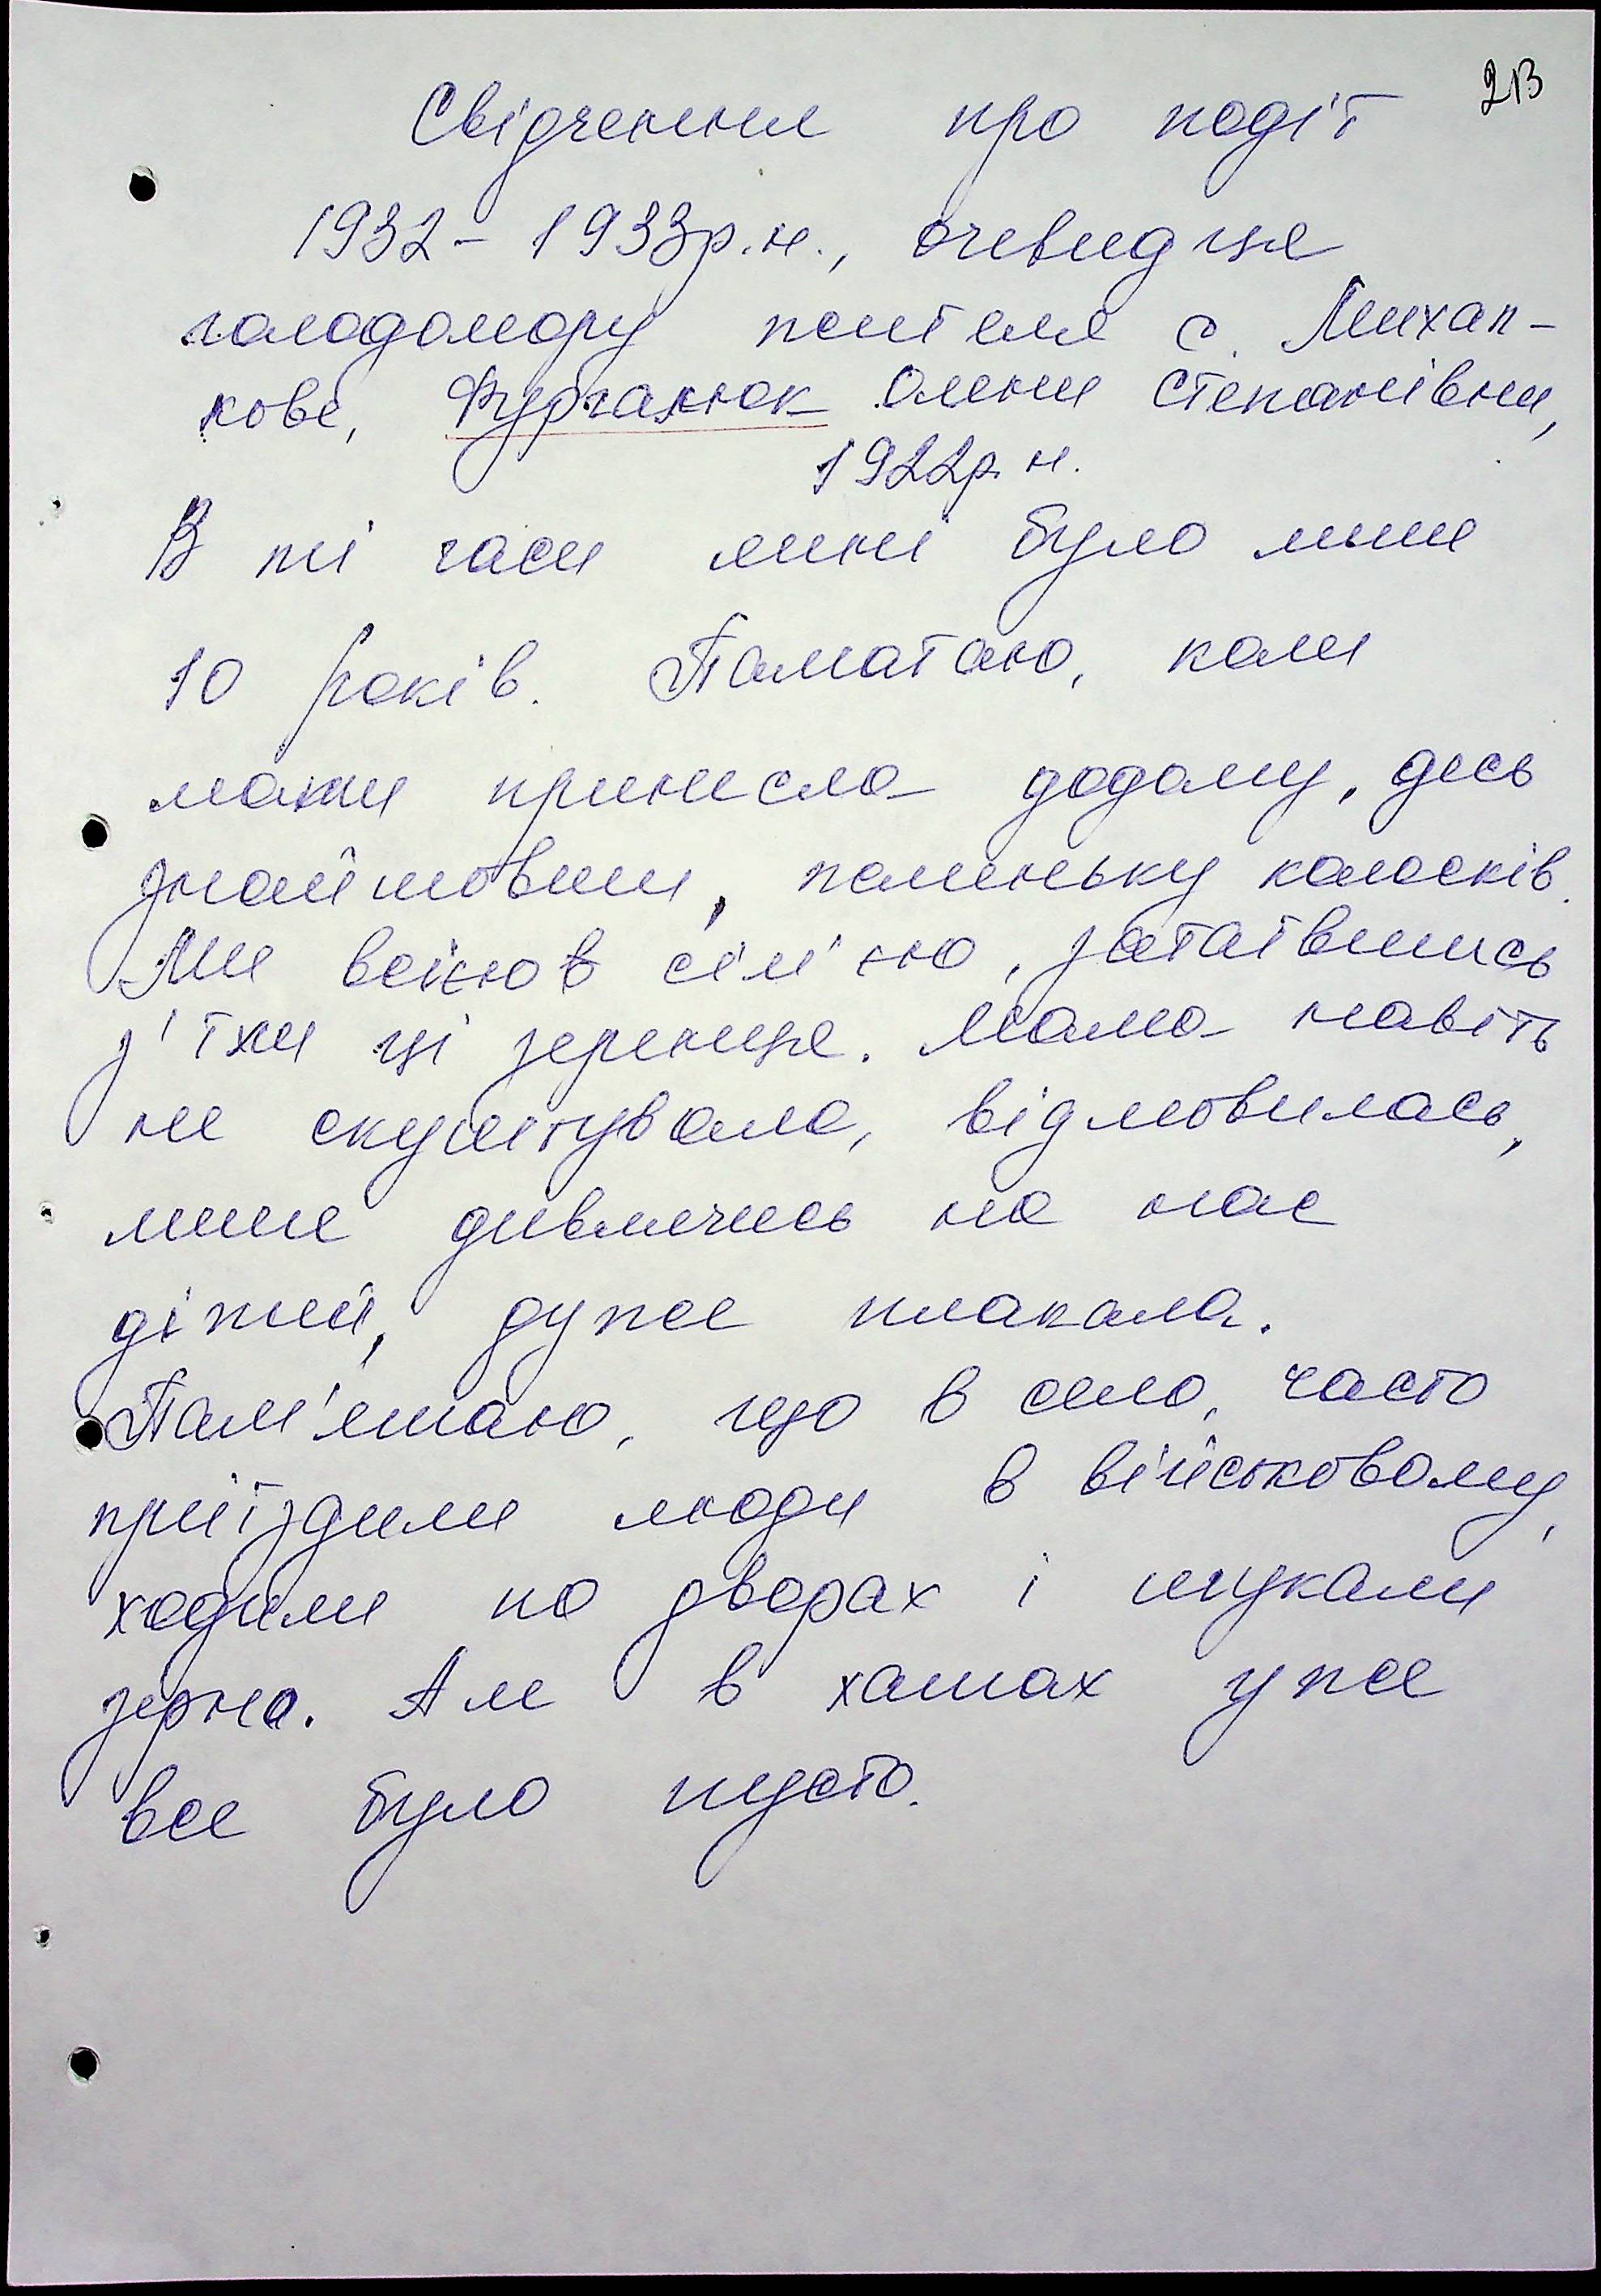 213
Свідчення про події
1932 - 1933р.н., очевидця
голодомору жителя с. Михал-
кове, Фургалюк Олени Степанівни,
1922р.н.
В ті часи мині було лише
10 років. Паматаю, коли
мати принесла додому, десь
знайшовши, жменьку колосків.
Ми всією сім'єю, затаївшись
з'їли ці зернице. Мама навіть
не скуштувала, відмовилась,
лише дивлячись на нас
дітий, дуже плакала.
Пам'ятаю, що в село, часто
приїздили люди в військовому,
ходили по дворах і шукали
зерно. Але в хатах уже
все було пусто.